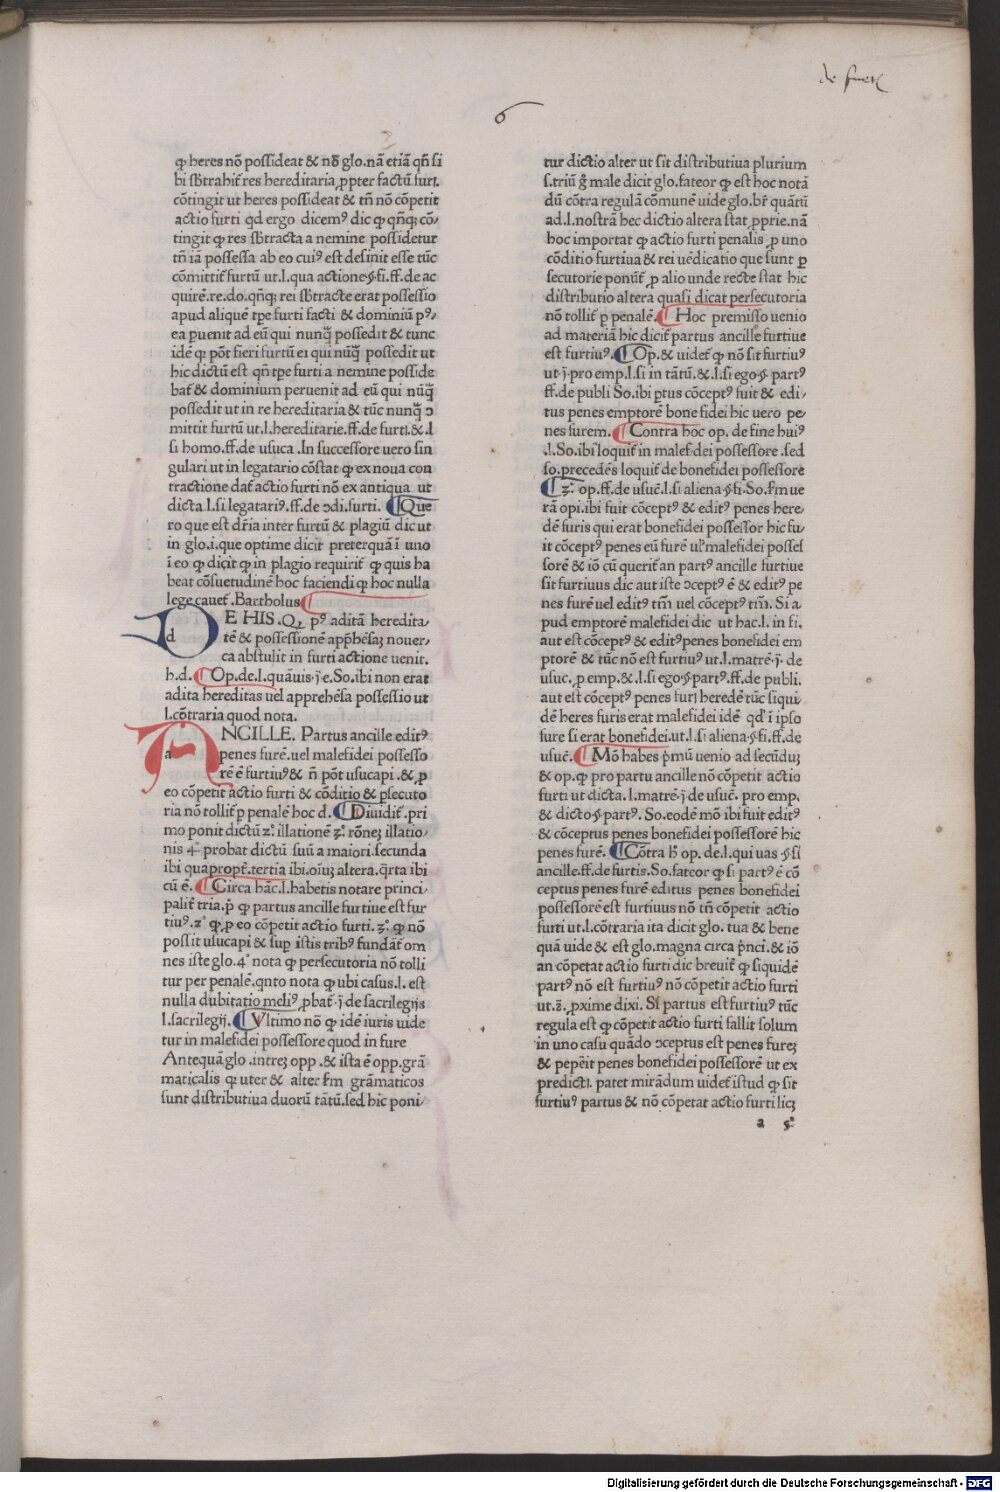 de furt
6
ꝙ heres nō possideat & nō glo.nā etiā qñ si
bi sƀtrahit̄ res hereditaria ꝓpter factū furi.
cōtingit ut heres possideat & tñ nō cōpetit
actio furti qd ergo dicemꝰ dic ꝙ qñqꝫ cō/
tingit ꝙ res sƀtracta a nemine possidetur
tñ iā possessa ab eo cuiꝰ est desinit esse tūc
cōmittit̄ furtū ut.l.qua actione.§.fi.ff.de ac
quirē.re.do.qñqꝫ rei sƀtracte erat possessio
apud aliquē tꝑe furti facti & dominiū pꝰ/
ea ꝑuenit ad eū qui nunq̄ possedit & tunc
idē ꝙ pōt fieri furtū ei qui nūq̄ possedit ut
hic dictū est qñ tꝑe furti a nemine posside
bat̄ & dominium peruenit ad eū qui nūq̄
possedit ut in re hereditaria & tūc nunq̄ ↄ
mittit furtū ut.l.hereditarie.ff.de furti.&.l
si homo.ff.de usuca .In successore uero sin
gulari ut in legatario cōstat ꝙ ex noua con
tractione dat̄ actio furti nō ex antiqua ut
dicta.l.si legatariꝰ.ff.de ↄdi.furti. ¶Que
ro que est dr̄ia inter furtū & plagiū dic ut
in glo.i.que optime dicit preterquā ī uno
ī eo ꝙ dicit ꝙ in plagio requirit̄ ꝙ quis ha
beat cōsuetudinē hoc faciendi ꝙ hoc nulla
lege cauet̄ .Bartholus ¶
d E HIS .Q, pꝰ aditā heredita/
tē & possessionē app̄hēsaꝫ nouer/
ca abstulit in furti actione uenit.
h.d. ¶Op.de.l.quāuis.j̄ e.So.ibi non erat
adita hereditas uel apprehēsa possessio ut
l.cōtraria quod nota.
a NCILLE. Partus ancille editꝰ
penes furē.uel malefidei possesso
rē ē furtiuꝰ & ñ pōt usucapi .& ꝑ
eo cōpetit actio furti & cōditio & ꝑsecuto
ria nō tollit̄ ꝑ penalē hoc d. ¶Diuidit̄ .pri
mo ponit dictū 2ᵒ. illationē 3ᵒ. rōneꝫ illatio/
nis 4ᵒ probat dictū suū a maiori.secunda
ibi quapropt̄.tertia ibi.oiuꝫ altera.q̄rta ibi
cū ē. ¶Circa hāc.l.habetis notare princi/
palit̄ tria.p̄ ꝙ partus ancille furtiue est fur
tiuꝰ.2ᵒ ꝙ,ꝓ eo cōpetit actio furti. 3ᵒ. ꝙ nō
possit usucapi & suꝑ istis tribꝰ fundāt̄ om
nes iste glo.4ᵒ nota ꝙ persecutoria nō tolli
tur per penalē.qnto nota ꝙ ubi casus.l. est
nulla dubitatio meliꝰ ꝓbat̄ j̄ de sacrilegijs
l.sacrilegij. ¶Vltimo nō ꝙ idē iuris uide
tur in malefidei possessore quod in fure
Antequā glo .intreꝫ opp .& ista ē opp.grā
maticalis ꝙ uter & alter ẜm grāmaticos
sunt distributiua duorū tātū.sed hic poni/
tur dictio alter ut sit distributiua plurium
s.triū g̊ male dicit glo.fateor ꝙ est hoc notā
dū cōtra regulā cōmunē uide glo.br̄ quātū
ad.l.nostrā hec dictio altera stat ꝓprie.nā
hoc importat ꝙ actio furti penalis ꝓ uno
cōditio furtiua & rei uēdicatio que sunt ꝑ
secutorie ponūt̄ ꝓ alio unde recte stat hic
distributio altera quasi dicat persecutoria
nō tollit̄ ꝑ penalē. ¶Hoc premisso uenio
ad materiā hic dicit̄ partus ancille furtiue
est furtiuꝰ. ¶Op.& uidet̄ ꝙ nō sit furtiuꝰ
ut.j̄.pro emp.l.si in tātū.&.l.si ego.§.partꝰ
ff.de publi So.ibi ꝑtus cōceptꝰ fuit & edi/
tus penes emptorē bone fidei hic uero pe/
nes furem. ¶Contra hoc op. de fine huiꝰ
.l.So.ibi loquit̄ in malef̄dei possessore .sed
so.precedēs loquit̄ de bonefidei possessore
¶3ᵒ. op.ff.de usuē.l.si aliena.§.fi.So.ẜm ue
rā opi.ibi fuit cōceptꝰ & editꝰ penes here/
dē furis qui erat bonefidei possessor hic fu/
it cōceptꝰ penes eū furē ul' malefidei posses
sorē & iō cū querit̄ an partꝰ ancille furtiue
sit furtiuus dic aut iste ↄceptꝰ ē & editꝰ pe
nes furē uel editꝰ tm̄ uel cōceptꝰ tm̄. Si a
pud emptorē malefidei dic ut hac.l. in fi.
aut est cōceptꝰ & editꝰ penes bonefidei em
ptorē & tūc nō est furtiuꝰ ut.l.matrē.j̄. de
usuc. ꝓ emp.&.l.si ego.§.partꝰ.ff.de publi.
aut est cōceptꝰ penes furi heredē tūc siqui
dē heres furis erat malefidei idē qd' ī ipso
fure si erat bonefidei.ut.l.si aliena.§.fi.ff.de
usuē. ¶Mō habes p̄mū uenio ad secūduꝫ
& op.ꝙ pro partu ancille nō cōpetit actio
furti ut dicta.l.matrē.j̄ de usuē. pro emp.
& dicto.§.partꝰ. So.eodē mō ibi fuit editꝰ
& cōceptus penes bonefidei possessorē hic
penes furē. ¶Cōtra h̄ op. de.l.qui uas .§.si
ancille.ff.de furtis.So.fateor ꝙ si partꝰ ē cō
ceptus penes furē editus penes bonefidei
possessorē est furtiuus nō tñ cōpetit actio
furti ut.l.cōtraria ita dicit glo. tua & bene
quā uide & est glo.magna circa p̄nci.& iō
an cōpetat actio furti dic breuit̄ ꝙ siquidē
partꝰ nō est furtiuꝰ nō cōpetit actio furti
ut.s̄. ꝓxime dixi. Si partus est furtiuꝰ tūc
regula est ꝙ cōpetit actio furti fallit solum
in uno casu quādo ↄceptus est penes fureꝫ
& peꝑit penes bonefidei possessorē ut ex
predicti. patet mirādum uidet̄ istud ꝙ sit
furtiuꝰ partus & nō cōpetat actio furti licꝫ
Digitalisierung gefördert durch die Deutsche Forschungsgemeinschaft - DFG